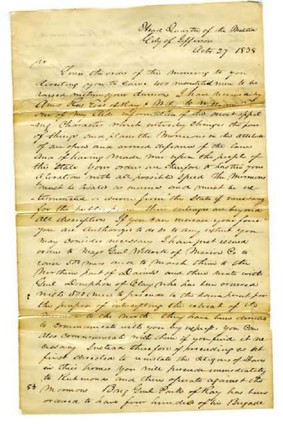 Head Quarters of the Militia
City of Jefferson
Octo. 27 1838
Sir
Since the order of the morning to you
directing you to cause two hundred men to be
raised within your division I have received by
Amos Rees Esqr of Ray &
information of the most appal
ling Character which entirely Changes the face
of things and places the Mormons in the attitude
of an open and armed defiance of the laws
And of having Made War upon the people of
this State Your orders are therefore to hasten your
Operations with all possible speed The Mormons
must be treated as enemies and must be ex-
terminated or driven from the State if necessary
for the public Their outrages are beyond
all description If you can increase your force
you are Authorized to do so to any extent you
may consider necessary I have just issued
orders to Majr Genl Wallock of Marion Co to
raise 500 men and to March them to the
Northern part of Daviess and there unite with
Genl Doniphan of Clay who has been ordered
with 500 men to proceed to the same point for
the purpose of intercepting the retreat of the
Mormons to the North They have been directed
to communicate with you by express You Can
also communicate with them if you find it ne-
cessary Instead therefore of proceeding as at
first directed to reinstate the citizens of Daviess
in their homes you will proceed immediately
to Richmond and there operate against the
Mormons Brig Genl Parks of Ray has been
ordered to have four hundred of his Brigade